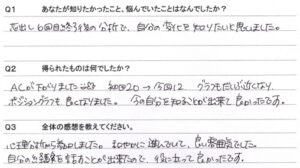 Q1　あなたが知りたかったこと、悩んでいたことはなんでしたか？
6回目終了後の分析で、自分の変化を知りたいと思いました。
Q2　得られたものは何でしたか？
ACが下がりました 初回20→今回12 グラフもだいぶ近くなり
ポジショングラフも良くなりました。今の自分を知ることが出来て良かったです。
Q3　全体の感想を教えてください。
心理分析から参加しました。まわやかに進んでいて、良い雰囲気でした。
自分の経験を話すことが出来たので、役に立って良かったです。